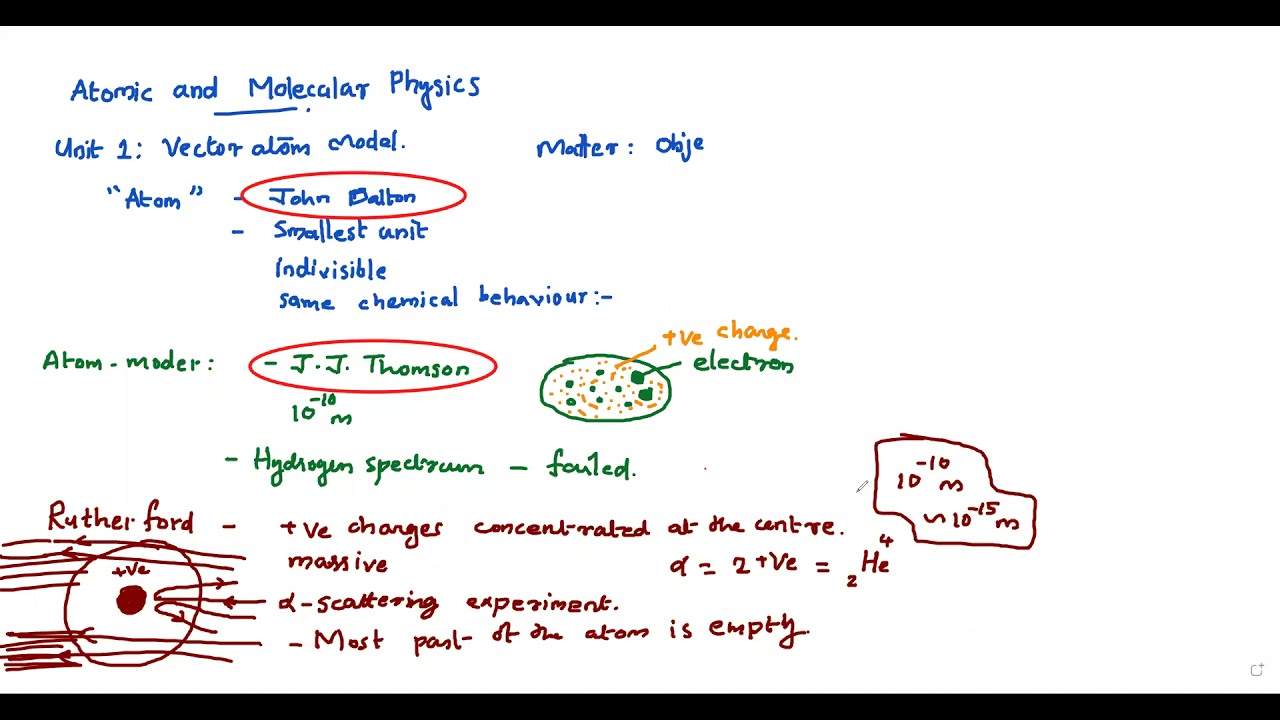 Atomic and Molecular Physics
Unit 1: Vector atom model.
Matter: Obje
"Atom" - John Dalton
- Smallest unit
indivisible
same chemical behaviour:-
+ve charge.
electron
Atom-model: - J.J. Thomson
10⁻¹⁰ m
- Hydrogen spectrum - failed.
10⁻¹⁰ m
~ 10⁻¹⁵ m
Rutherford - +ve charges concentrated at the centre.
massive
α = 2 +ve = ₂He⁴
+ve
α-scattering experiment.
- Most part of the atom is empty.